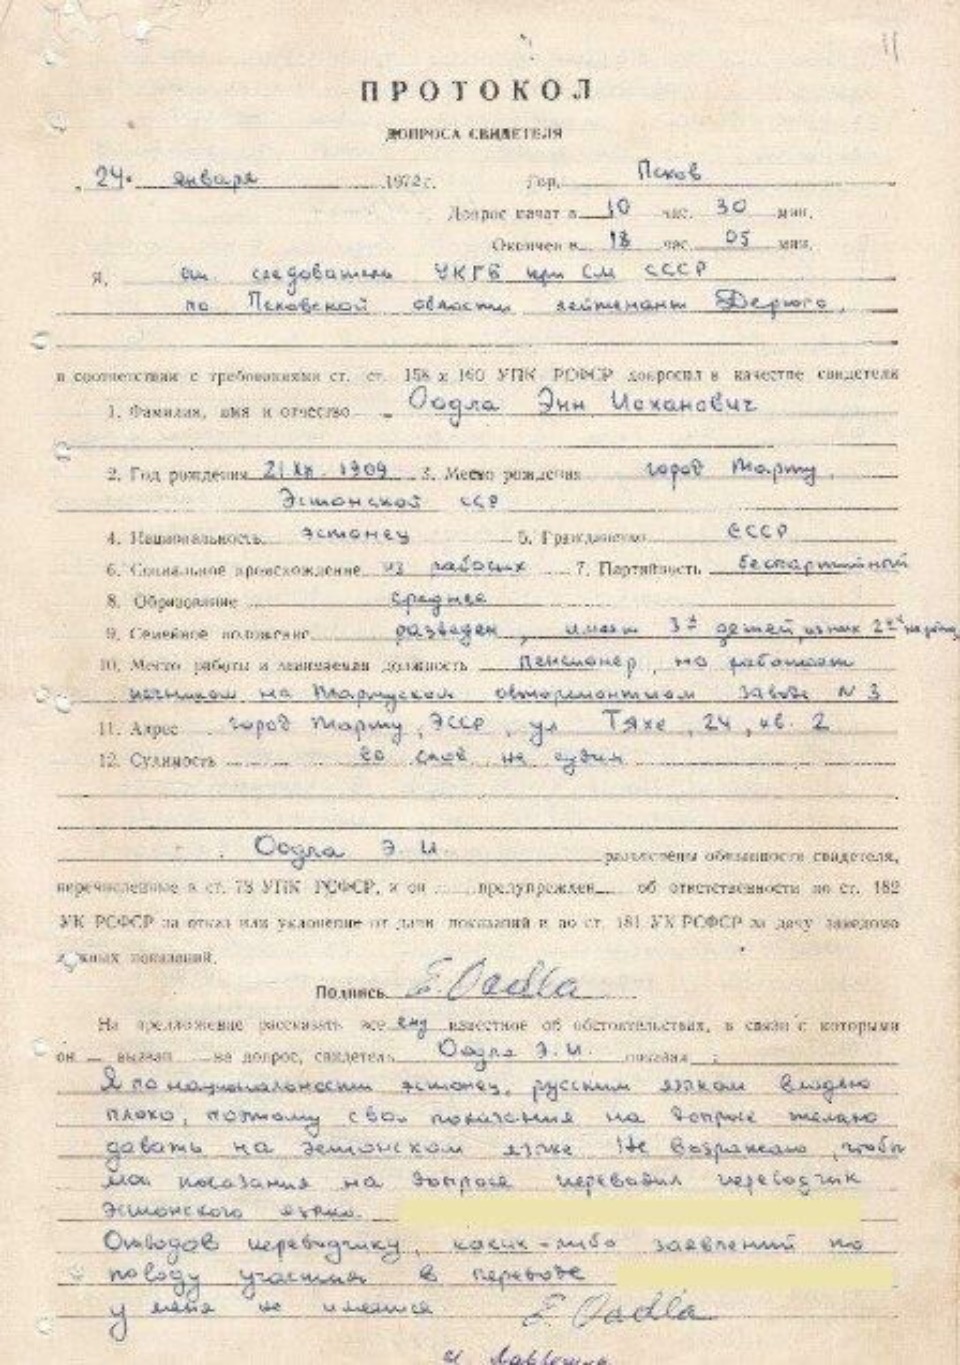 11
ПРОТОКОЛ
ДОПРОСА СВИДЕТЕЛЯ
„24" января 1972 г. Гор. Псков
Допрос начат в 10 час. 30 мин.
Окончен в 18 час. 05 мин.
Я, ст. следователь УКГБ при СМ СССР
по Псковской области лейтенант Дерюго,
в соответствии с требованиями ст. ст. 158 и 160 УПК РСФСР допросил в качестве свидетеля
1. Фамилия, имя и отчество Оодла Энн Иоханович
2. Год рождения 21 XII 1909 3. Место рождения город Тарту,
Эстонской ССР
4. Национальность эстонец 5. Гражданство СССР
6. Социальное происхождение из рабочих 7. Партийность беспартийный
8. Образование среднее
9. Семейное положение разведен, имеет 3х детей, из них 2
10. Место работы и занимаемая должность пенсионер, но работает
печником на Тартуском авторемонтном заводе № 3
11. Адрес город Тарту, ЭССР, ул Тяхе, 24, кв. 2
12. Судимость со слов не судим
Оодла Э. И. разъяснены обязанности свидетеля,
перечисленные в ст. 73 УПК РСФСР, и он предупрежден об ответственности по ст. 182
УК РСФСР за отказ или уклонение от дачи показаний и по ст. 181 УК РСФСР за дачу заведомо
ложных показаний.
Подпись E. Oadla
На предложение рассказать все ему известное об обстоятельствах, в связи с которыми
он вызван на допрос, свидетель Оодла Э. И. показал:
Я по национальности эстонец, русским языком владею
плохо, поэтому свои показания на допросе желаю
давать на эстонском языке. Не возражаю, чтобы
мои показания на допросе переводил переводчик
эстонского языка.
Отводов переводчику, каких-либо заявлений по
поводу участия в переводе
у меня не имеется. E. Oadla